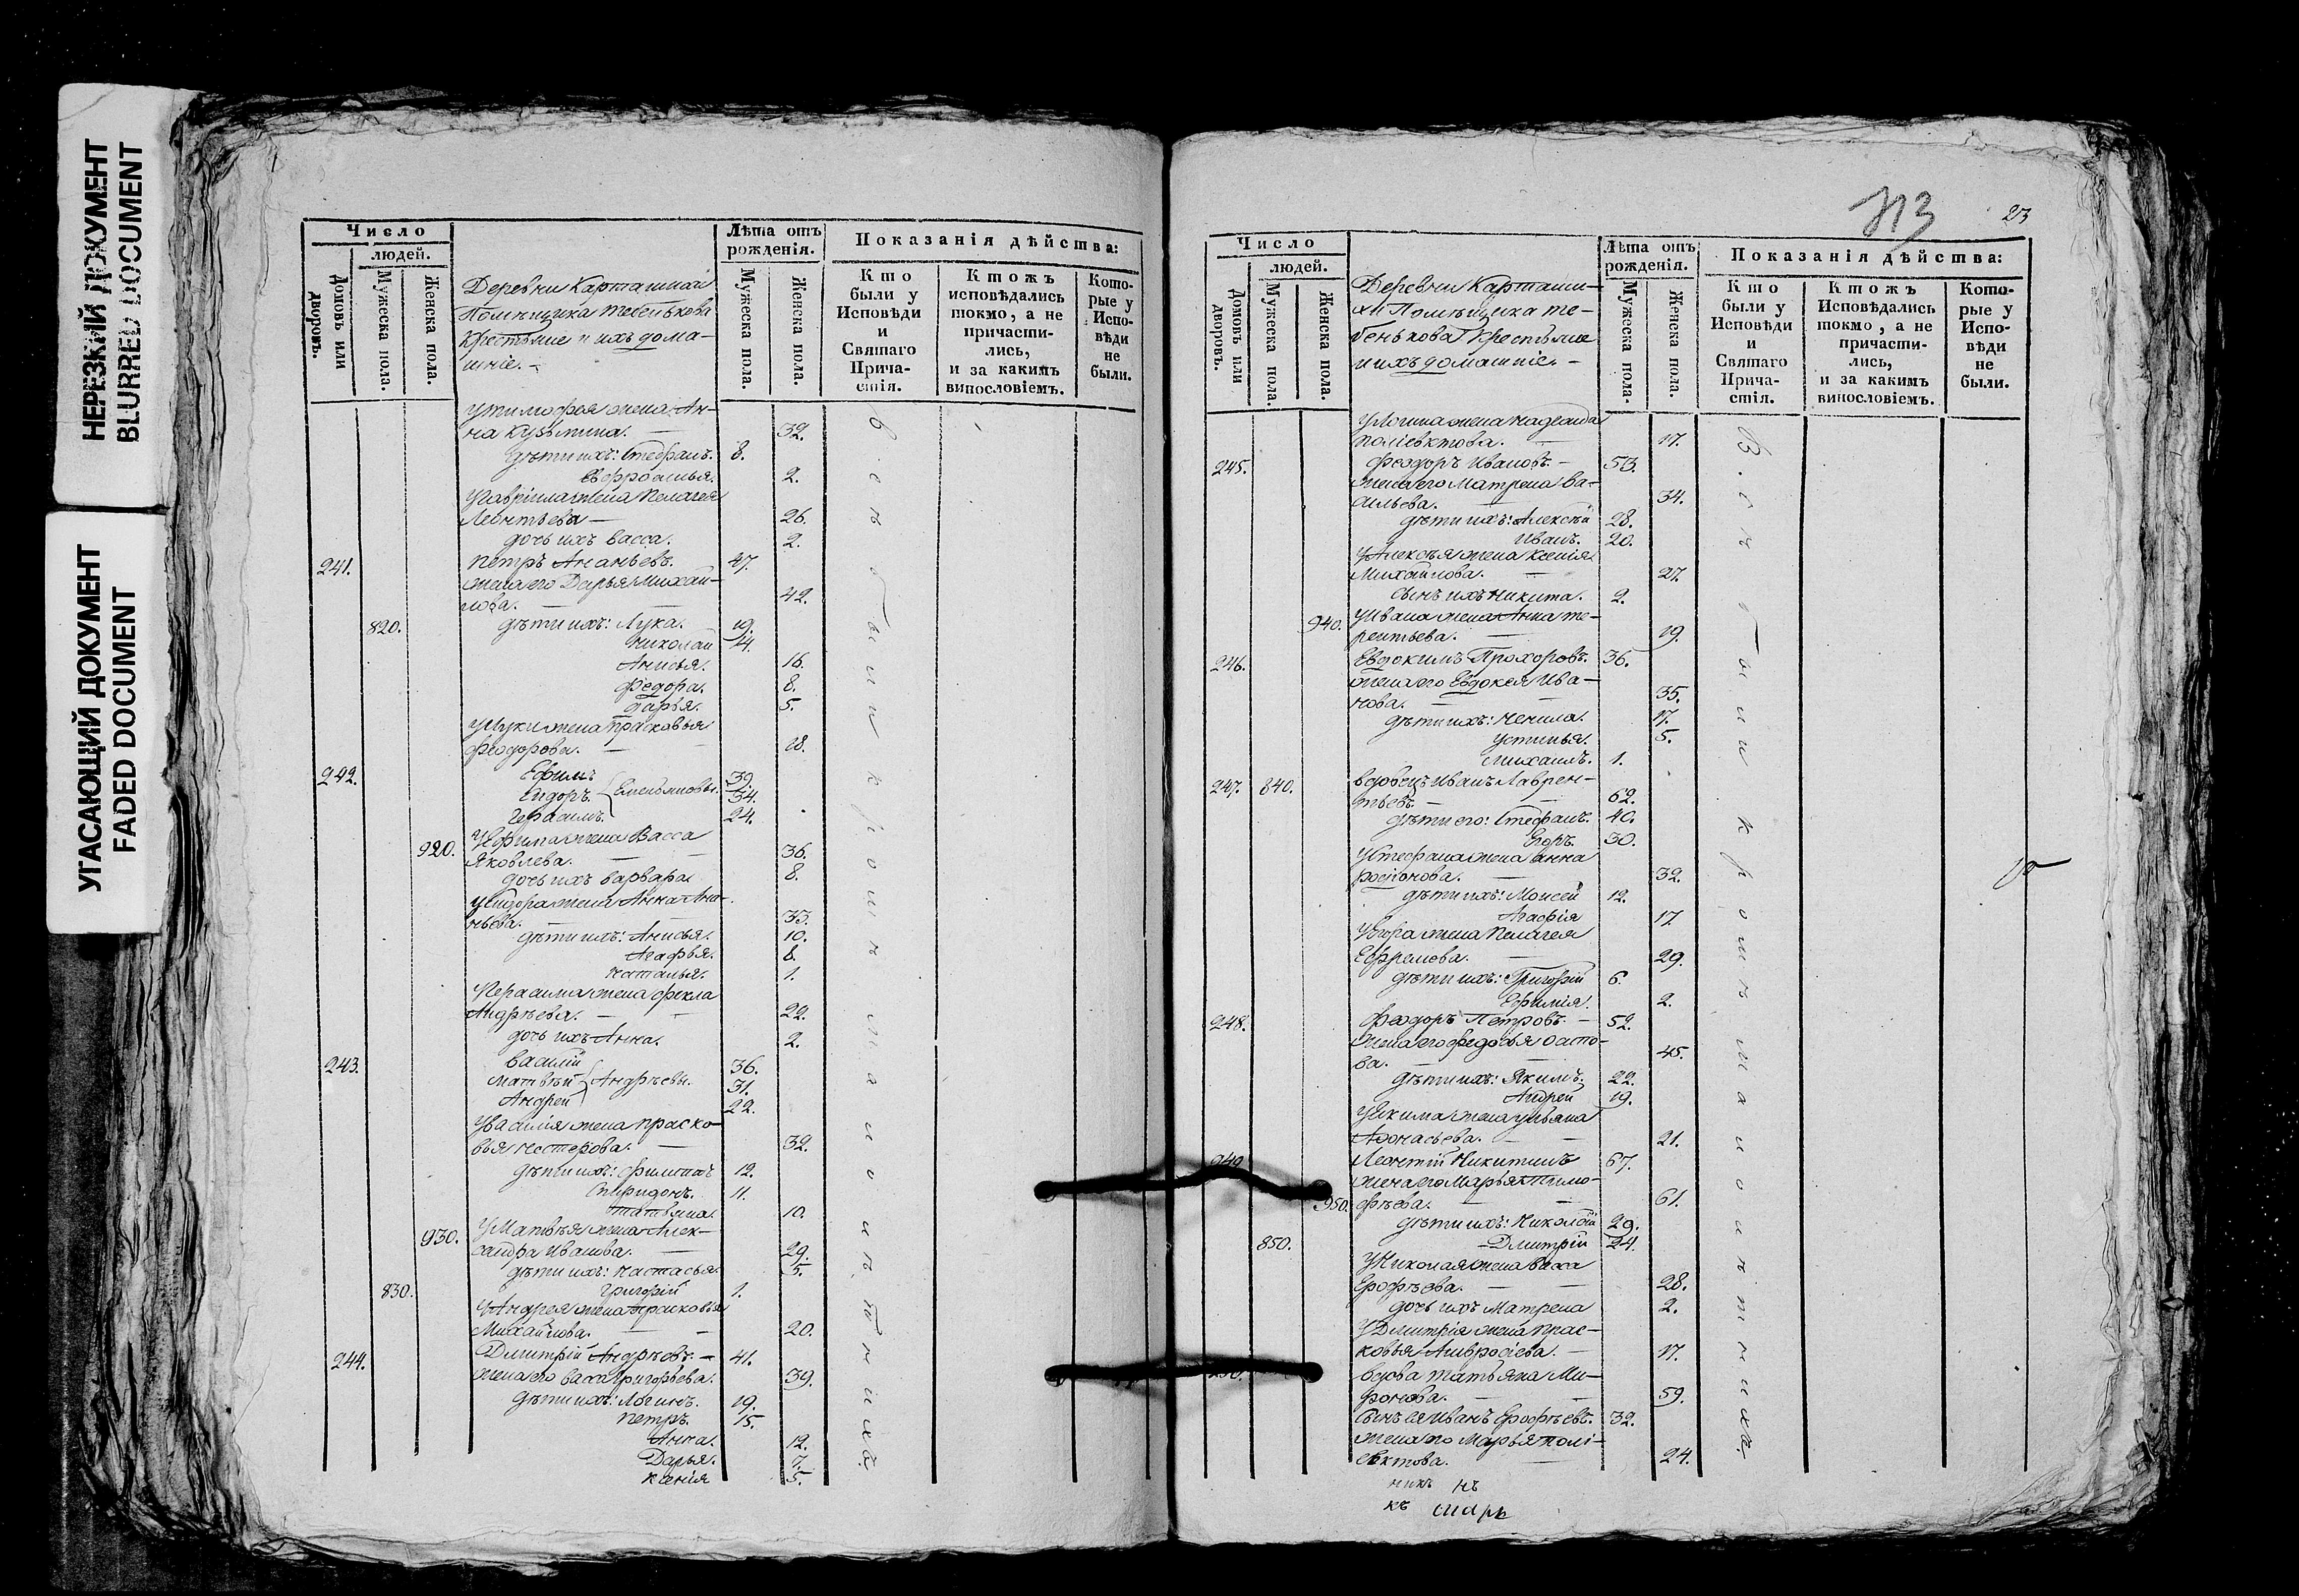 НЕРЕЗКИЙ ДОКУМЕНТ
BLURRED DOCUMENT
УГАСАЮЩИЙ ДОКУМЕНТ
FADED DOCUMENT
Число
людей.
Домовъ или дворовъ.
Мужеска пола.
Женска пола.
Деревни Карташихи
Помѣщика Тебенькова
Крестьяне и ихъ дома-
шніе. -
Лѣта отъ рожденія.
Мужеска пола.
Женска пола.
Показанія дѣйства:
Кто были у Исповѣди и Святаго Прича-стія.
Ктожъ исповѣдались токмо, а не причасти-лись, и за какимъ винословіемъ.
Кото-рые у Испо-вѣди не были.
У Тимофея жена Ан-
на Кузьмина. 32.
дѣти ихъ: Стефанъ. 8.
Евфросинья. 2.
У Гавріила жена Пелагея
Леонтьева 26.
дочь ихъ Васса. 2.
241. Петръ Ананьевъ. 47.
жена его Дарья Михай-
лова. 42.
820. дѣти ихъ: Лука. 19.
Николай 14.
Анисья. 16.
Федора. 8.
Дарья. 5.
У Луки жена Прасковья
Феодорова. 18.
242. Ефимъ 39.
Сидоръ. Емельяновы. 34.
Герасимъ. 24.
У Ефима жена Васса
920. Яковлева. 36.
дочь ихъ Варвара 8.
У Сидора жена Анна Ана-
ньева. 33.
дѣти ихъ: Анисья. 10.
Агафья. 8.
Наталья. 1.
У Герасима жена Фекла
Андрѣева. 22.
дочь ихъ Анна. 2.
243. Василій 36.
Матвѣй Андрѣевы. 31.
Андрей 22.
У Василія жена Праско-
вья Нестерова. 32.
дѣти ихъ: Филиппъ 12.
Спиридонъ. 11.
Татьяна. 10.
У Матвѣя жена Алек-
930. сандра Иванова. 29.
дѣти ихъ: Настасья. 5.
830. Григорій 1.
У Андрея жена Прасковья
Михайлова. 20.
244. Димитрій Андрѣевъ. 41.
жена его Васса Григорьева. 39.
дѣти ихъ: Логинъ. 19.
Петръ. 15.
Анна. 12.
Дарья. 7.
Ксенія 5.
313
23
Число
людей.
Домовъ или дворовъ.
Мужеска пола.
Женска пола.
Деревни Карташи-
хи Помѣщика Те-
бенькова Крестьяне
и ихъ домашніе. -
Лѣта отъ рожденія.
Мужеска пола.
Женска пола.
Показанія дѣйства:
Кто были у Исповѣди и Святаго Прича-стія.
Ктожъ Исповѣдались токмо, а не причасти-лись, и за какимъ винословіемъ.
Кото-рые у Испо-вѣди не были.
У Логина жена Надежда
Поліевктова. 17.
245. Феодоръ Ивановъ. 53.
жена его Матрена Ва-
сильева. 34.
дѣти ихъ: Алексѣй 28.
Иванъ. 20.
У Алексѣя жена Ксенія
Михайлова. 27.
сынъ ихъ Никита. 2.
940. У Ивана жена Анна Те-
рентьева. 19.
246. Евдокимъ Прохоровъ. 36.
жена его Евдокея Ива-
нова. 35.
дѣти ихъ: Ненила. 17.
Устинья. 5.
Михаилъ. 1.
247. 840. Вдовецъ Иванъ Лаврен-
тьевъ. 62.
дѣти его: Стефанъ. 40.
Егоръ. 30.
У Стефана жена Анна
Родіонова. 32.
дѣти ихъ: Моисей 12.
Агафія 17
У Егора жена Пелагея
Ефремова. 29.
дѣти ихъ: Григорій 6.
Ефимія. 2.
248. Феодоръ Петровъ. 52.
жена его Федосья Осипо-
ва. 45.
дѣти ихъ: Якимъ. 22.
Андрей 19.
У Якима жена Ульяна
Афонасьева. 21.
249 Леонтій Никитинъ 67.
жена его Марья Тимо-
950. фѣева. 61.
дѣти ихъ: Николай 29.
850. Дмитрій 24.
У Николая жена Васса
Ерофѣева. 28.
дочь ихъ Матрена 2.
У Дмитрія жена Прас-
ковья Амвросіева. 17.
250. Вдова Татьяна Ми-
ронова. 59.
Сынъ ея Иванъ Ерофѣевъ. 32.
жена его Марья Полі-
евктова. 24.